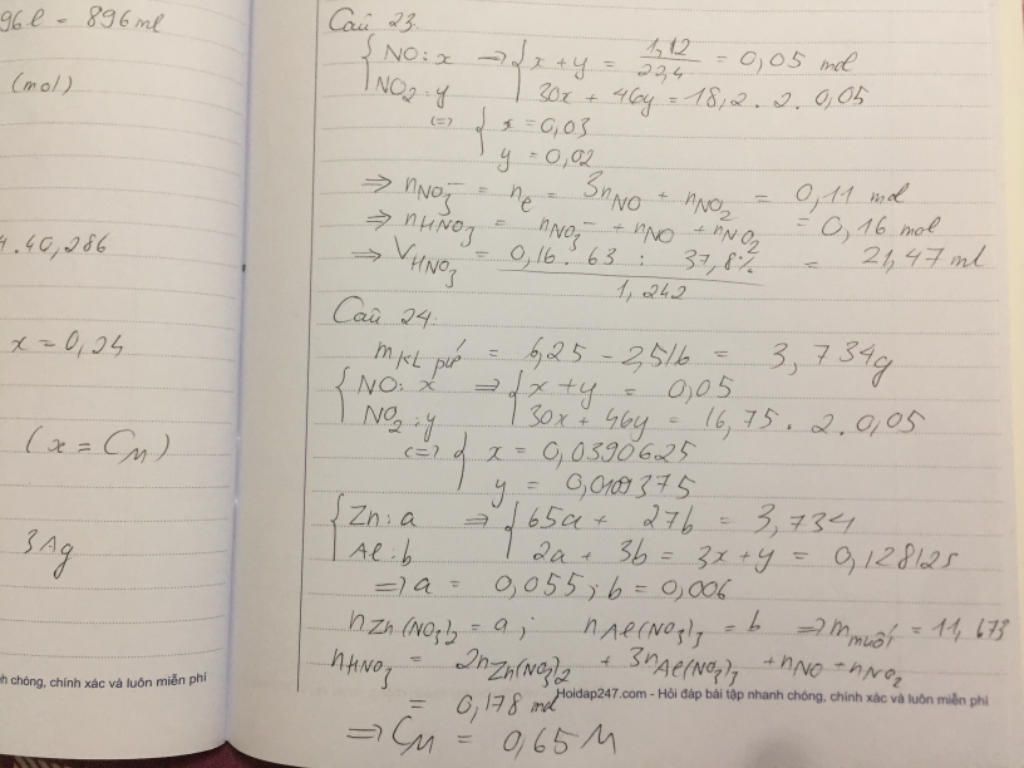 96l = 896ml
(mol)
4.40,286
x = 0,24
(x = CM)
3Ag
nh chóng, chính xác và luôn miễn phí
Câu 23:
{ NO: x → { x + y = 1,12/22,4 = 0,05 mol
NO2: y 30x + 46y = 18,2 . 2 . 0,05
(=) { x = 0,03
y = 0,02
=> nNO3- = ne = 3nNO + nNO2 = 0,11 mol
=> nHNO3 = nNO3- + nNO + nNO2 = 0,16 mol
=> VHNO3 = 0,16 . 63 : 37,8% / 1,242 = 21,47 ml
Câu 24:
mKL pứ = 6,25 - 2,516 = 3,734g
{ NO: x => { x + y = 0,05
NO2: y 30x + 46y = 16,75 . 2 . 0,05
(=) { x = 0,0390625
y = 0,0109375
{ Zn: a => { 65a + 27b = 3,734
Al: b 2a + 3b = 3x + y = 0,128125
=> a = 0,055; b = 0,006
nZn(NO3)2 = a; nAl(NO3)3 = b => mmuối = 11,673
nHNO3 = 2nZn(NO3)2 + 3nAl(NO3)3 + nNO + nNO2
Hoidap247.com - Hỏi đáp bài tập nhanh chóng, chính xác và luôn miễn phí
= 0,178 mol
=> CM = 0,65M